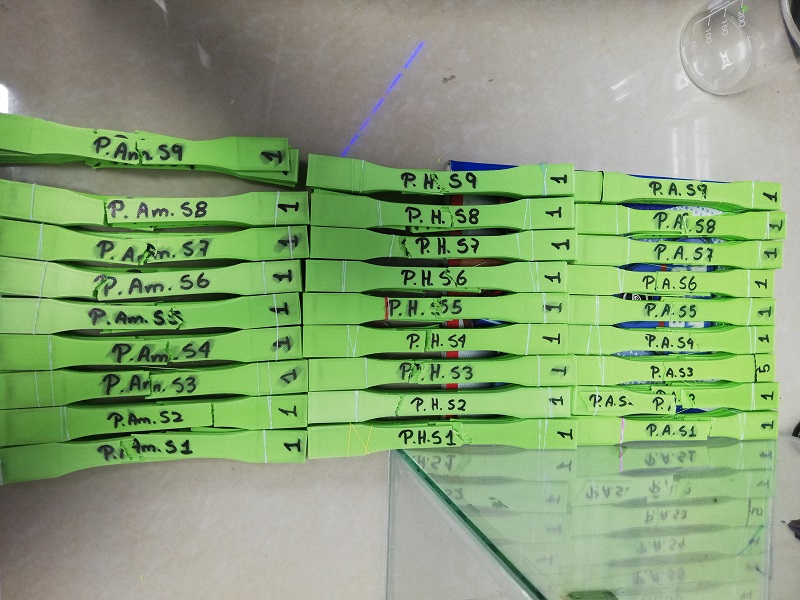 P. Am. S9 1
P. Am. S8 1
P. Am. S7 1
P. Am. S6 1
P. Am. S5 1
P. Am. S4 1
P. Am. S3 1
P. Am. S2 1
P. Am. S1 1
P. H. S9 1
P. H. S8 1
P. H. S7 1
P. H. S6 1
P. H. S5 1
P. H. S4 1
P. H. S3 1
P. H. S2 1
P.H.S1 1
P.A.S9 1
P.A.S8 1
P.A.S7 1
P.A.S6 1
P.A.S5 1
P.A.S4 1
P.A.S3 5
P.A.S. 1
P.A.S1 1
200
150
100